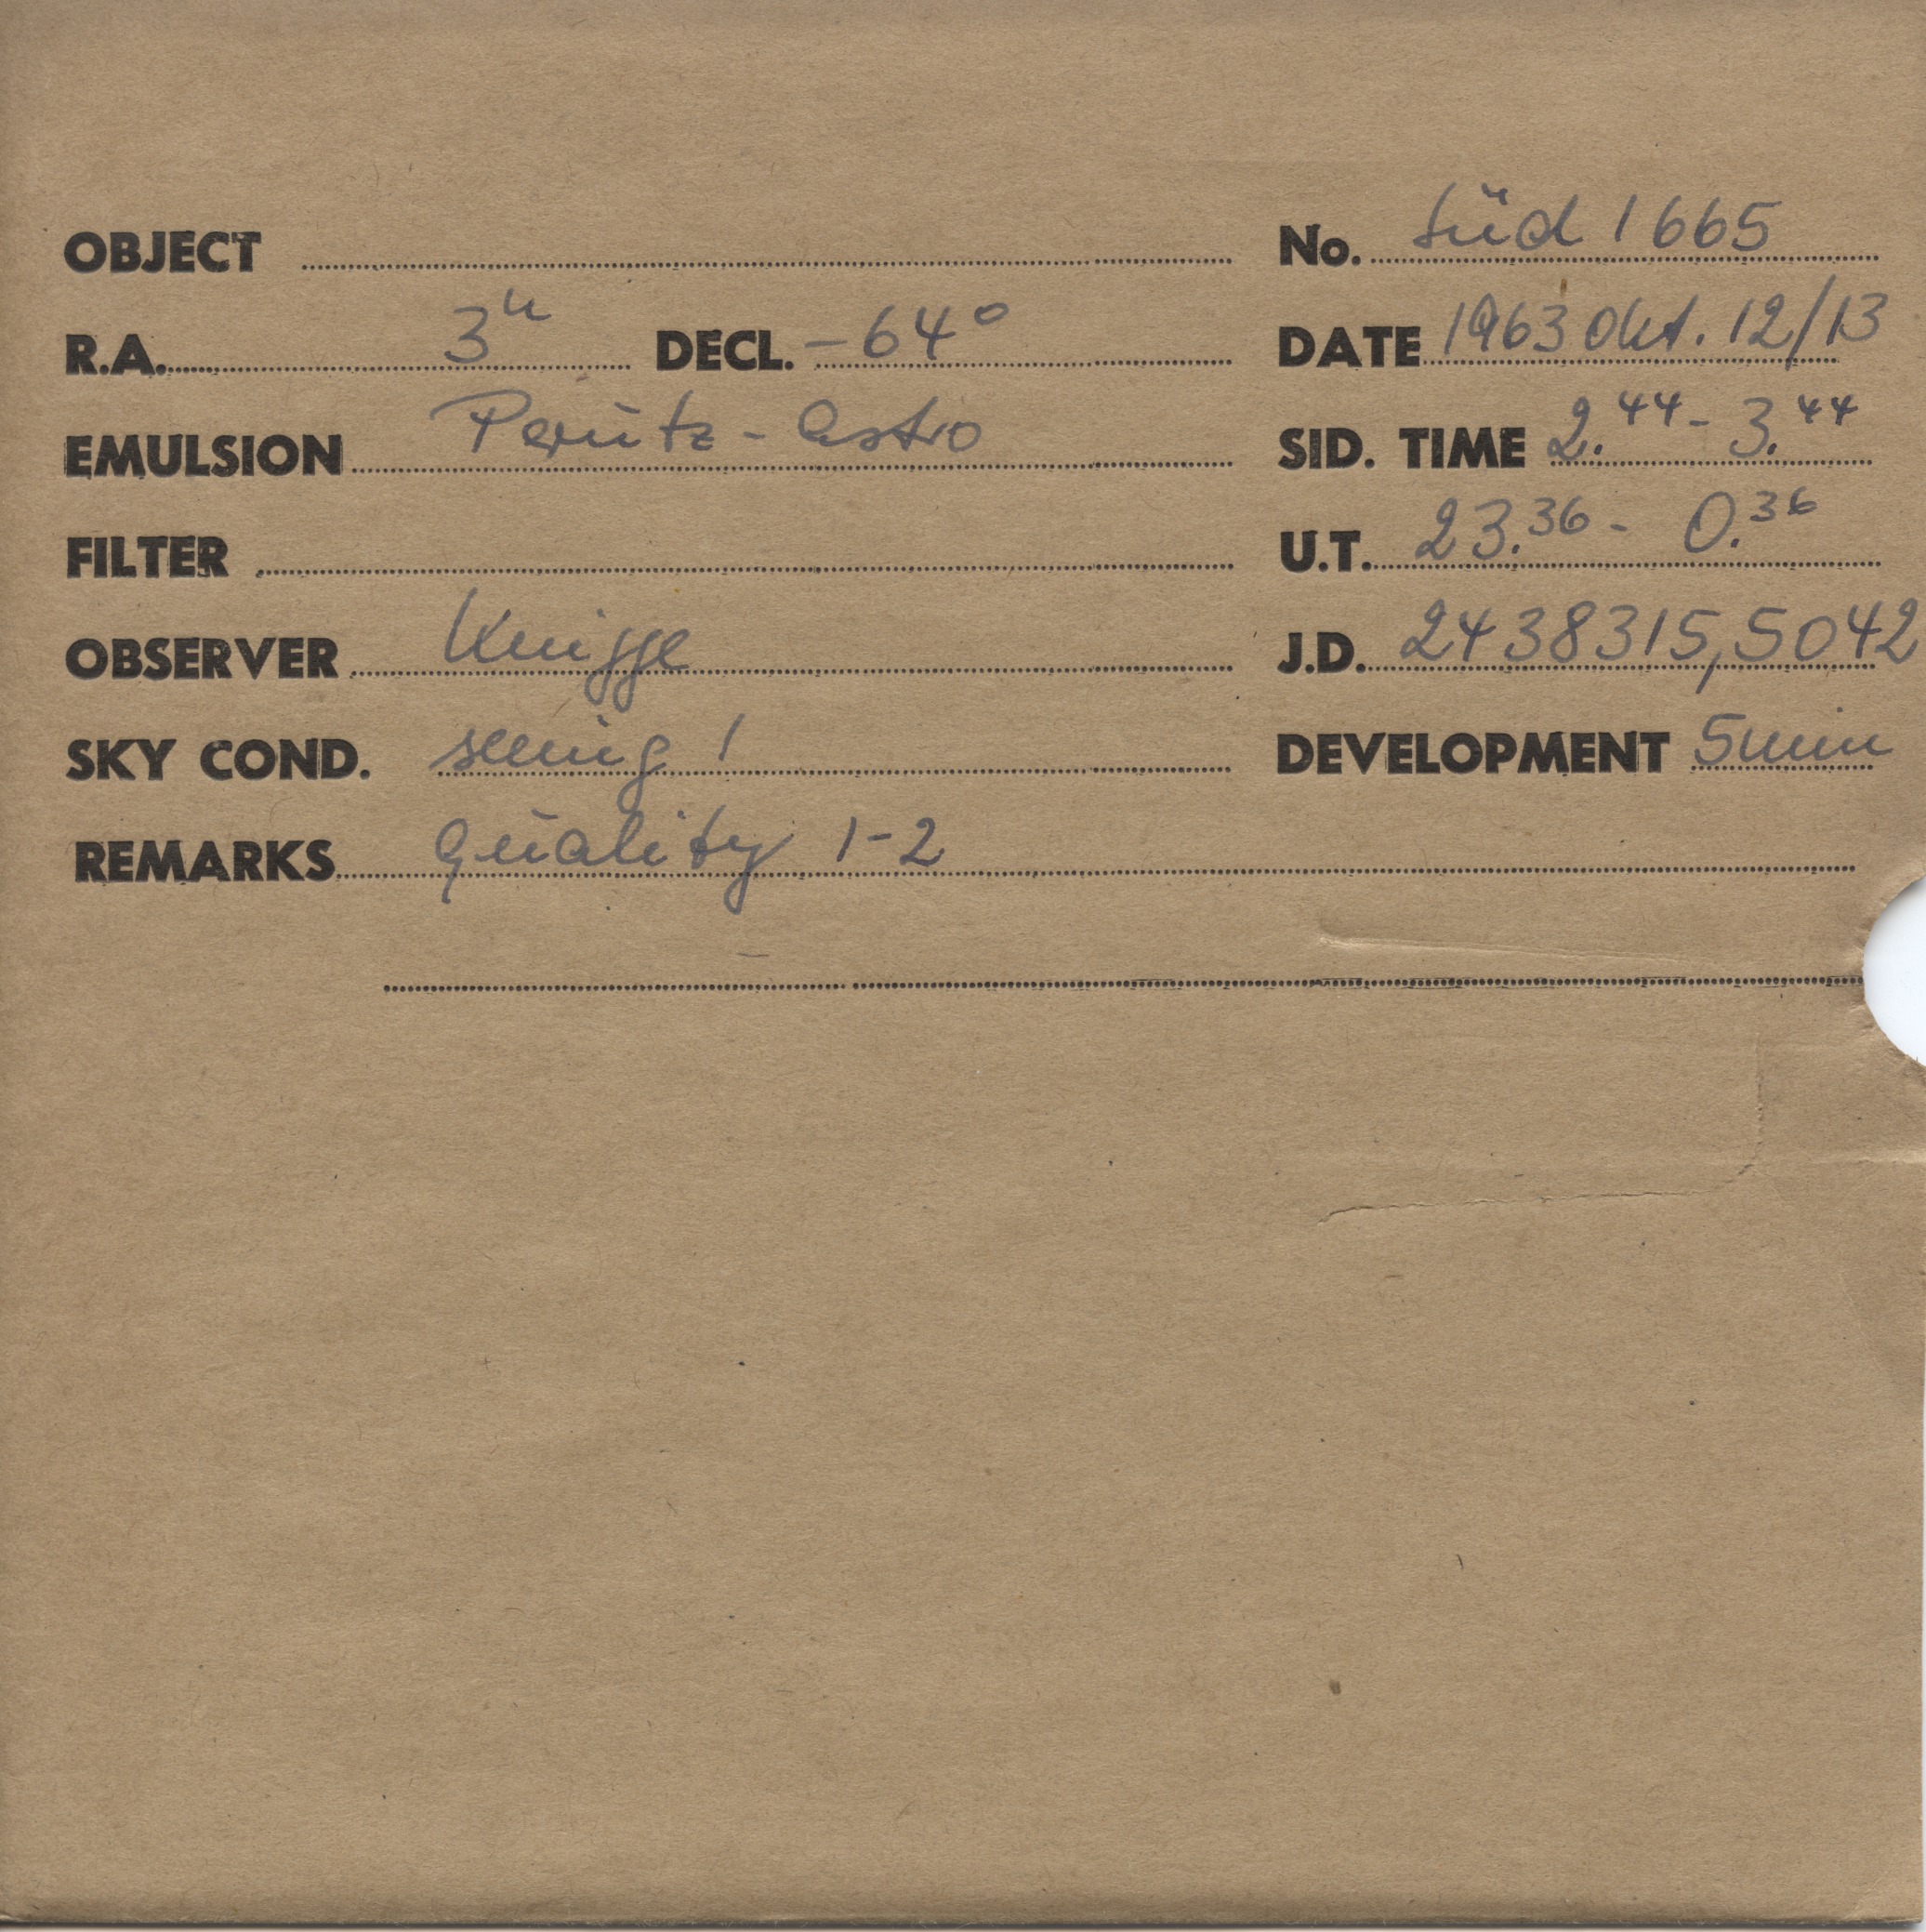 OBJECT No. Süd 1665
R.A. 3h DECL. -64° DATE 1963 Okt. 12/13
EMULSION Perutz - Astro SID. TIME 2.44 - 3.44
FILTER U.T. 23.36 - 0.36
OBSERVER Knigge J.D. 2438315,5042
SKY COND. seeing 1 DEVELOPMENT 5 min
REMARKS Quality 1-2